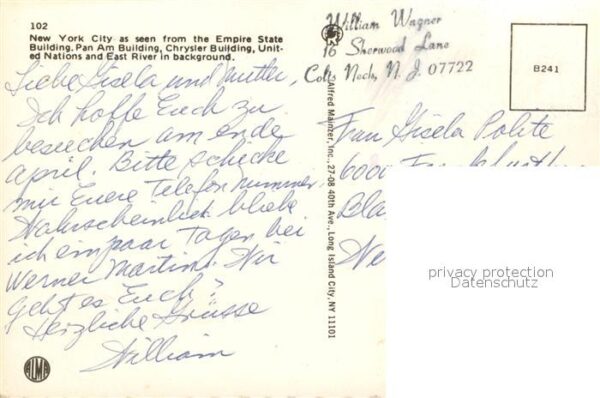 102
New York City as seen from the Empire State
Building, Pan Am Building, Chrysler Building, Unit-
ed Nations and East River in background.
Liebe Gisela und Mutter,
Ich hoffe Euch zu
besuchen am ende
april. Bitte schicke
mir Euere Telefon nummer.
Wahrscheinlich bleibe
ich ein paar Tagen bei
Werner Martin. Wir
Geht es Euch?
Herzliche Grüsse
William
Alfred Mainzer, Inc., 27-08 40th Ave., Long Island City, NY 11101
William Wagner
16 Sherwood Lane
Colts Neck, N. J. 07722
B241
Frau Gisela Polite
6000
Bla
We
privacy protection
Datenschutz